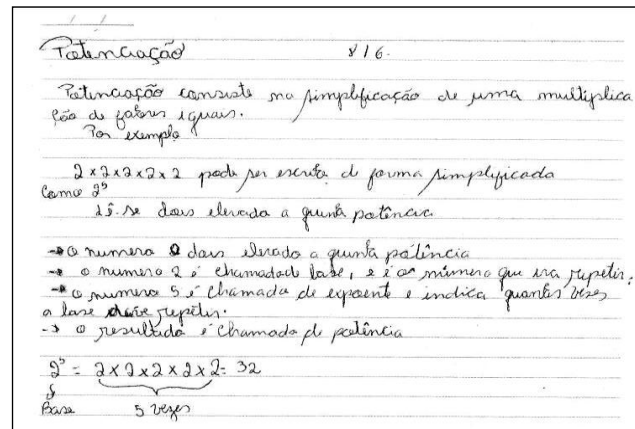 Potenciação 816.
Potenciação consiste na simplificação de uma multiplica
ção de fatores iguais.
Por exemplo
2 x 2 x 2 x 2 x 2 pode ser escrita de forma simplificada
como 2⁵
lê-se dois elevado a quinta potência
→ o numero dois elevado a quinta potência
→ o numero 2 é chamado de base, e é o número que ira repetir;
→ o numero 5 é chamado de expoente e indica quantas vezes
a base deve repetir.
→ o resultado é chamado de potência
2⁵ = 2 x 2 x 2 x 2 x 2 = 32
Base 5 vezes